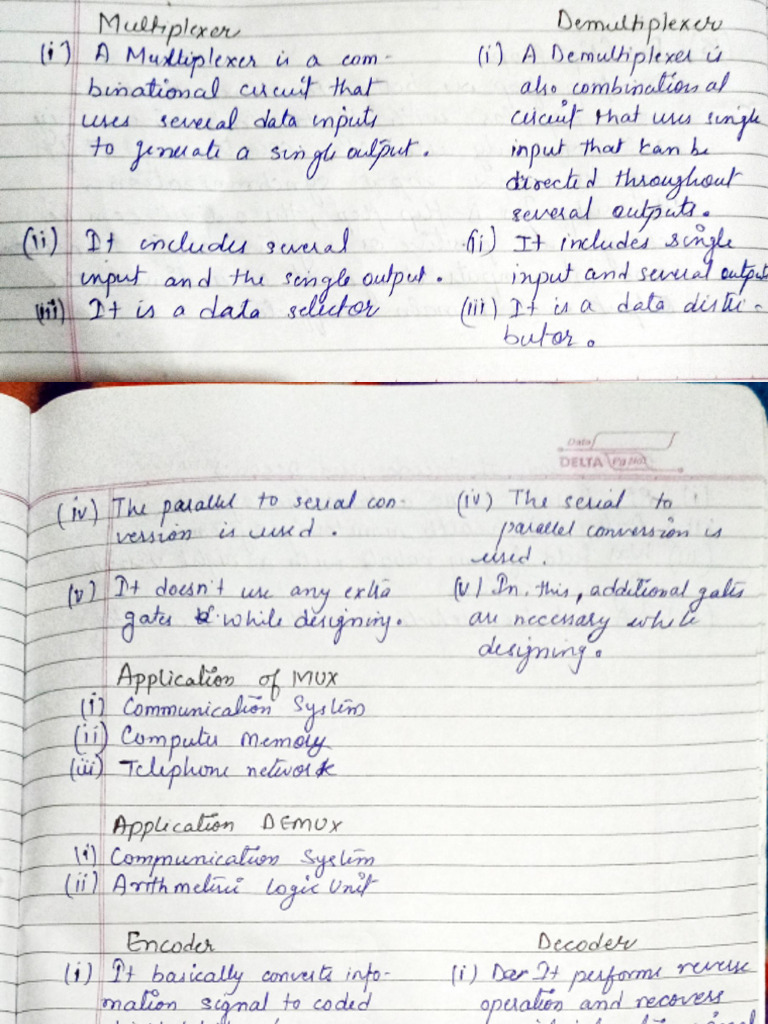 Multiplexer
(i) A Multiplexer is a com-
binational circuit that
uses several data inputs
to generate a single output.
(ii) It includes several
input and the single output.
(iii) It is a data selector
Demultiplexer
(i) A Demultiplexer is
also combinational
circuit that uses single
input that can be
directed throughout
several outputs.
(ii) It includes single
input and several outputs
(iii) It is a data distri-
butor.
Date
DELTA Pg No.
(iv) The parallel to serial con-
version is used.
(v) It doesn't use any extra
gates while designing.
(iv) The serial to
parallel conversion is
used.
(v) In this, additional gates
are necessary while
designing.
Application of MUX
(i) Communication System
(ii) Computer Memory
(iii) Telephone network
Application DEMUX
(i) Communication System
(ii) Arithmetic Logic Unit
Encoder
(i) It basically converts info-
mation signal to coded
Decoder
(i) It performs reverse
operation and recovers